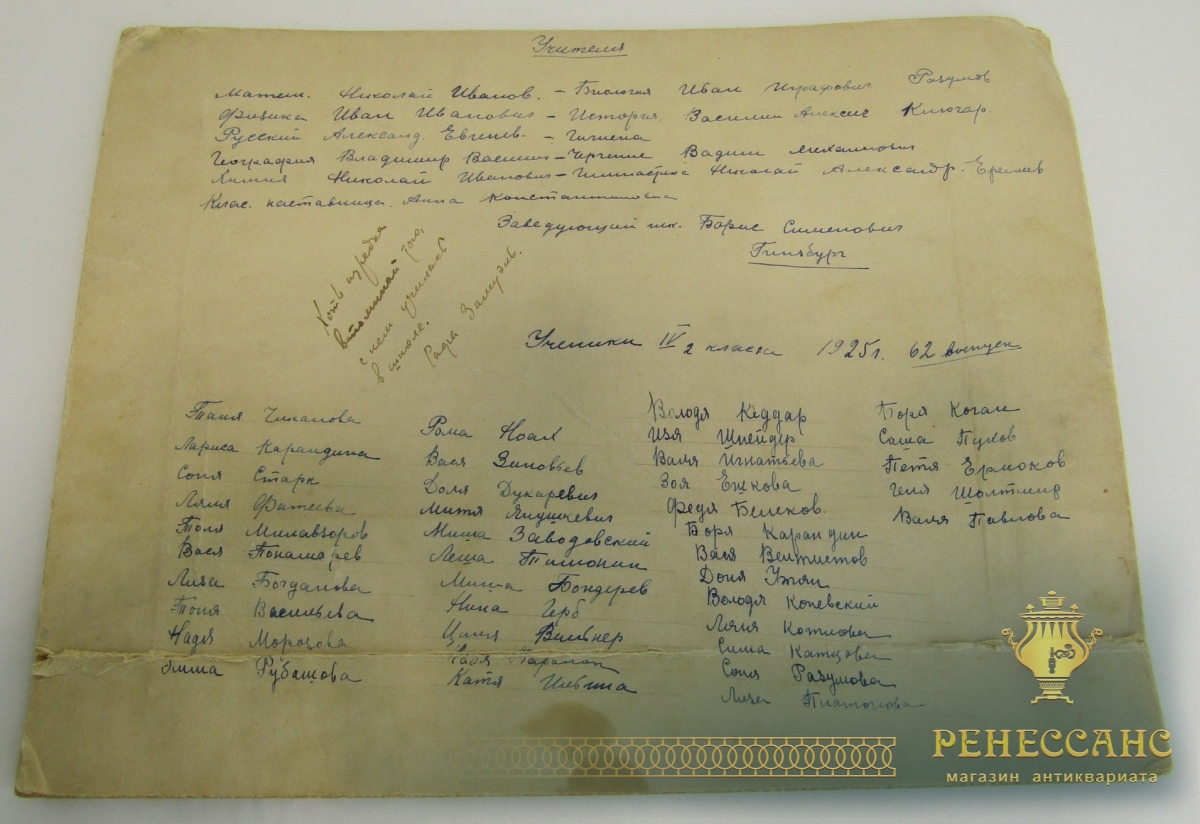 Учителя
Матем. Николай Иванов. – Биология Иван Разумов
Физика Иван Иванович – История. Василий Алексич Ключар.
Русский Александ. Евгенев. – Гигиена
География Владимир Васильи – Черчение Вадим Михайлович
Химия Николай Иванович – Николай Александр. Еремеев
Клас. наставница. Анна Константиновна
Заведующий шк. Борис Сименович
Гинзбург
Хоть изредка
вспоминай того,
с кем училась
в школе.
Ученики IV 2 класса 1925 г. 62 выпуск
Таня Чиканова
Лариса Карандина
Соня Старк
Ляля Фатеева
Толя Милавзоров
Вася
Лиза Богданова
Тоня Васильева
Надя Морозова
Эмма Рубашова
Рома Ноах
Вася Зиновьев
Доля Дукаревич
Митя Янушкевич
Миша Заводовский
Леша Тимонин
Миша Бондерев
Нина Герб
Циля Вейнер
Катя Ильина
Володя Кеддар
Изя Шнейдер
Валя Игнатьева
Зоя Ежкова
Федя Белеков.
Боря Карандин
Вася
Доня
Володя Коневский
Ляля Котлова
Сима Катцова
Соня Разумова
Лиза Платонова
Боря Коган
Саша Пухов
Петя Ермоков
Геля
Валя Павлова
РЕНЕССАНС
магазин антиквариата